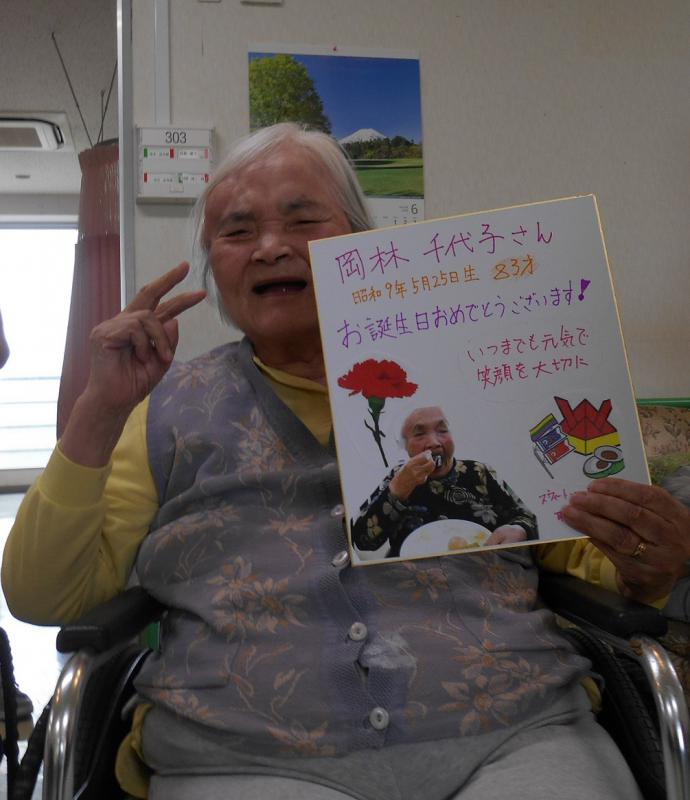 303
6
岡林 千代子さん
昭和9年5月25日生 83才
お誕生日おめでとうございます!
いつまでも元気で
笑顔を大切に
スウィート